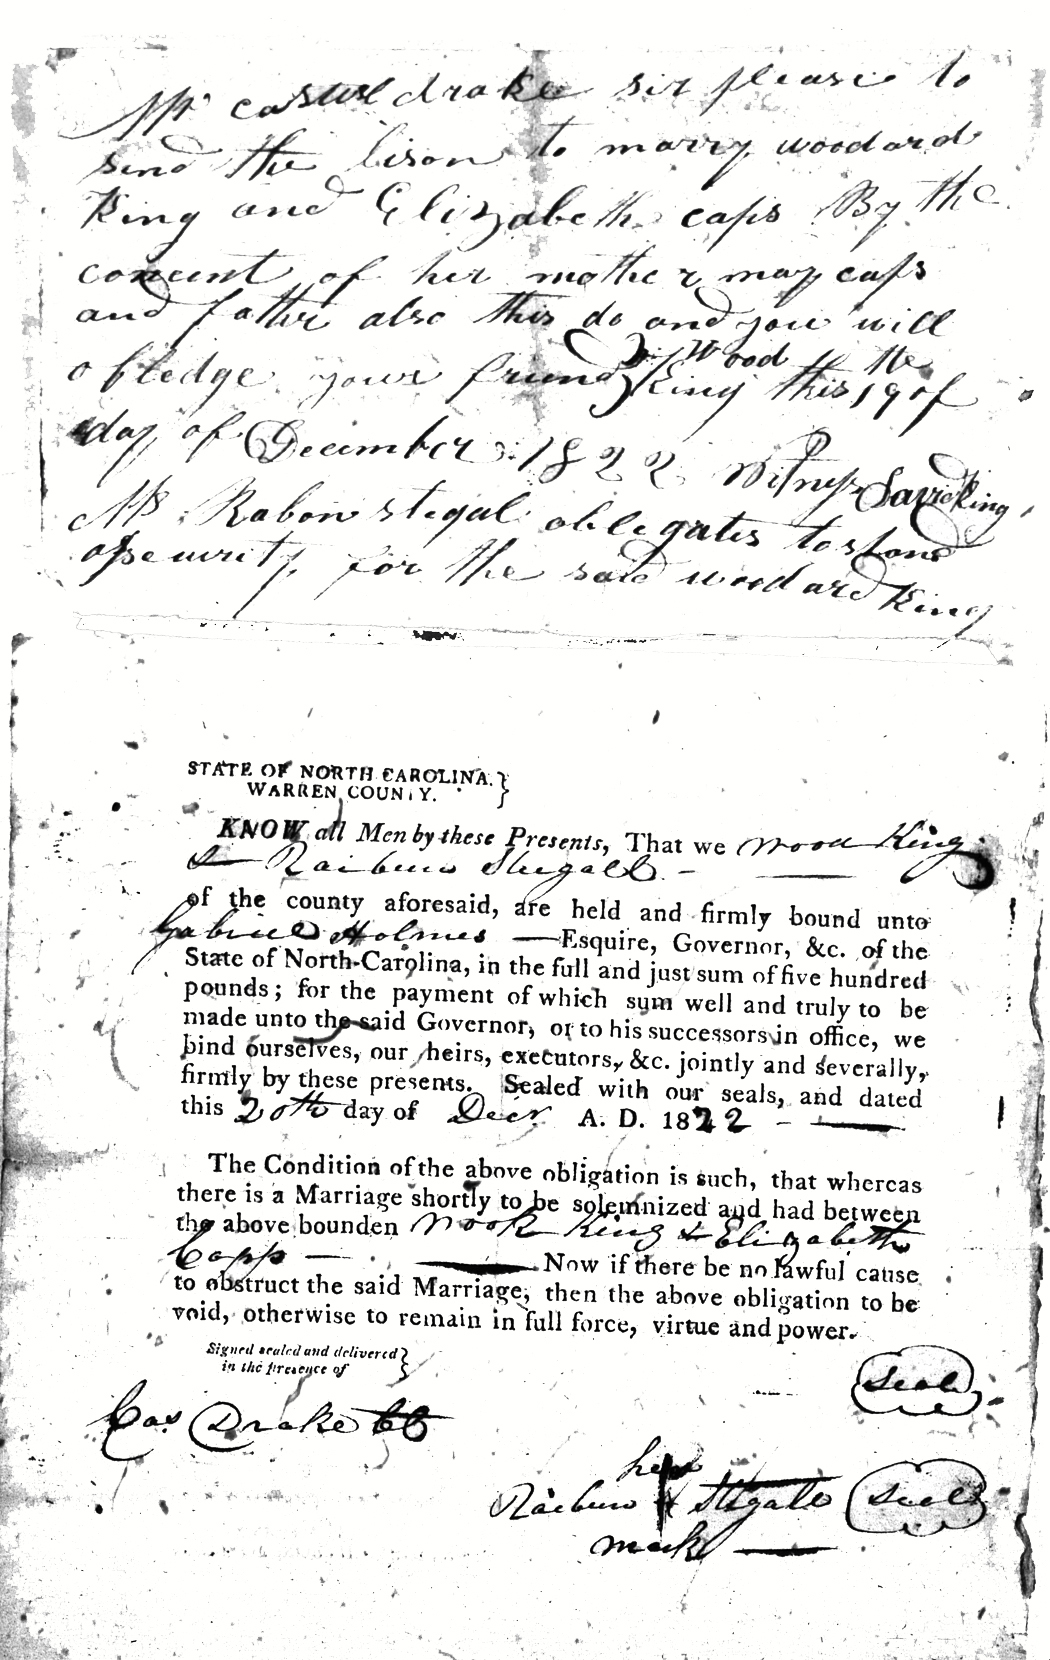 Mr caswel drake sir please to
send the lison to marry woodard
King and Elizabeth caps By the
concent of her mother may caps
and father also this do and you will
obledge your friend Wood King this 19 of the
day of December 1822 Witness David King
Mr Rabon stegal oblegates to stand
as securrity for the said woodard King
STATE OF NORTH CAROLINA. }
WARREN COUNTY. }
KNOW all Men by these Presents, That we Wood King
& Raiburn Stegall
of the county aforesaid, are held and firmly bound unto
Gabriel Holmes — Esquire, Governor, &c. of the
State of North-Carolina, in the full and just sum of five hundred
pounds; for the payment of which sum well and truly to be
made unto the said Governor, or to his successors in office, we
bind ourselves, our heirs, executors, &c. jointly and severally,
firmly by these presents. Sealed with our seals, and dated
this 20th day of Decr A. D. 1822
The Condition of the above obligation is such, that whereas
there is a Marriage shortly to be solemnized and had between
the above bounden Wood King & Elizabeth
Capp — Now if there be no lawful cause
to obstruct the said Marriage, then the above obligation to be
void, otherwise to remain in full force, virtue and power.
Signed sealed and delivered }
in the presence of }
Seal
Cas. Drake CC
his
Raiburn X Stegall Seal
mark